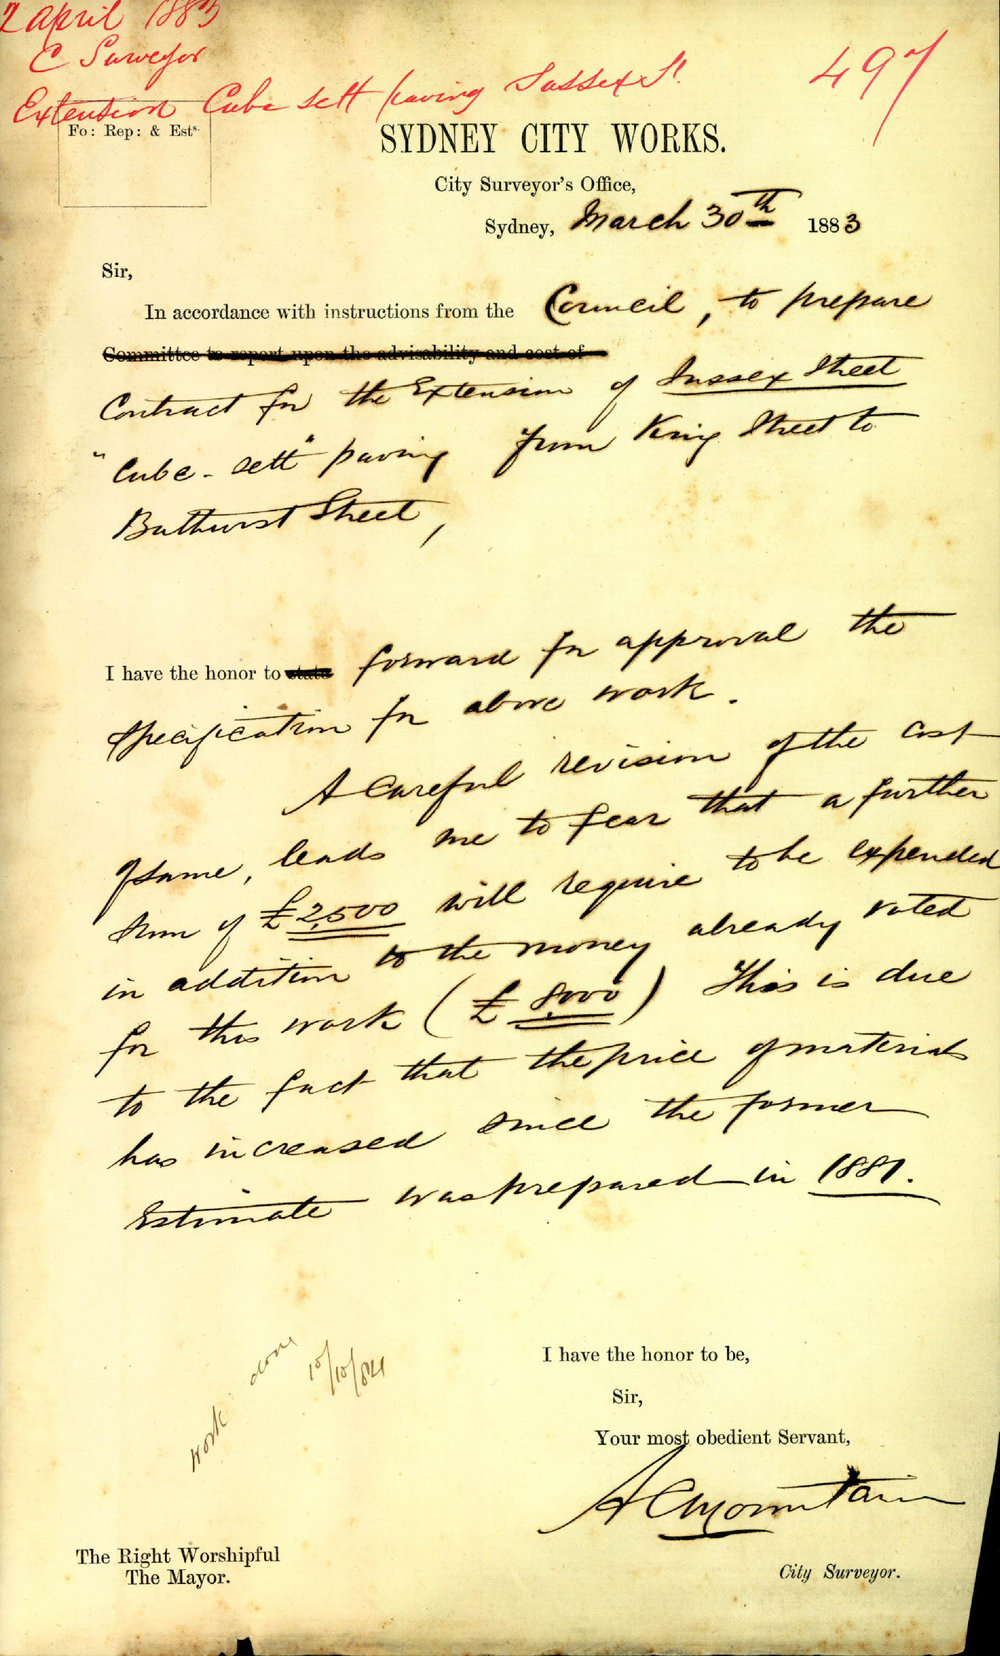 2 April 1883
C Surveyor
497
Extension Cube sett paving Sussex St.
Fo: Rep: & Ests.
SYDNEY CITY WORKS.
City Surveyor's Office,
Sydney, March 30th 1883
Sir,
In accordance with instructions from the Council, to prepare
Committee to report upon the advisability and cost of
Contract for the Extension of Sussex Street
"Cube-sett" paving from King Street to
Bathurst Street,
I have the honor to state forward for approval the
Specification for above work.
A Careful revision of the Cost
of same, leads me to fear that a further
Sum of £2,500 will require to be expended
in addition to the money already voted
for this work (£8,000) This is due
to the fact that the price of materials
has increased since the former
Estimate was prepared in 1881.
I have the honor to be,
Sir,
Your most obedient Servant,
A C Mountain
City Surveyor.
work done 10/10/84
The Right Worshipful
The Mayor.